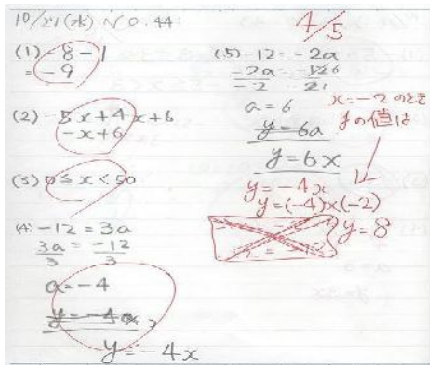 10/21(水) No.44
4/5
(1) -8-1
= -9
(2) -5x+4x+6
-x+6
(3) 0≦x<50
(4) -12=3a
3a/3 = -12/3
a=-4
y=-4x
(5) -12=-2a
a=6
y=6a
y=6x
x=-2のとき
yの値は
y=-4x
y=(-4)×(-2)
y=8